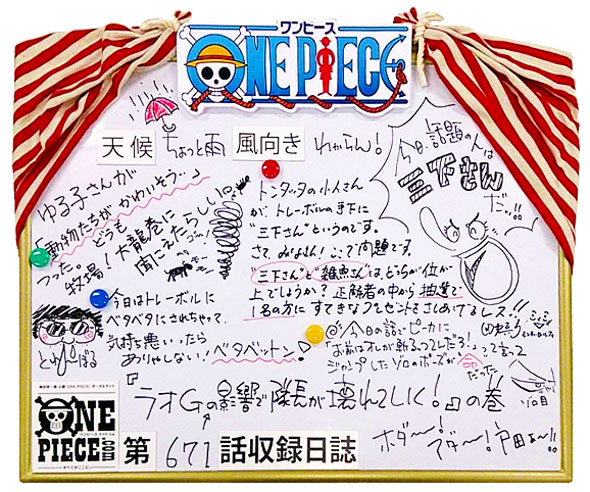 ワンピース
ONE PIECE
天候 ちょっと雨 風向き わからん！
今日、話題の人は
三下さん
だッ!!
ゆる子さんが
「動物たちが かわいそう…」
つった。どうも
牧場！大龍巻に
聞こえたらしい。
トンタッタの小人さん
が、トレーボルの手下に
"三下さん"というのです。
さて、みなさん！ここで問題です。
"三下さん"と"雑魚さん"は、どちらが位が
上でしょうか？正解者の中から抽選で
1名の方に すてきなプレゼントをさしあげてるレス!!
今日はトレーボルに
ベタベタにされちゃって、
気持ち悪いったら
ありゃしない！ベタベットン
とれーぼる
今日の話でピカに
「お前はオレが斬るっつてんだろ！」って言って
ジャンプしたゾロのポーズが
ゾロ目
『ラオGの影響で隊長が壊れてしく！』の巻
ボダ〜！マダ〜！戸田ぁ〜!!
ONE
PIECE
.com
第671話収録日誌